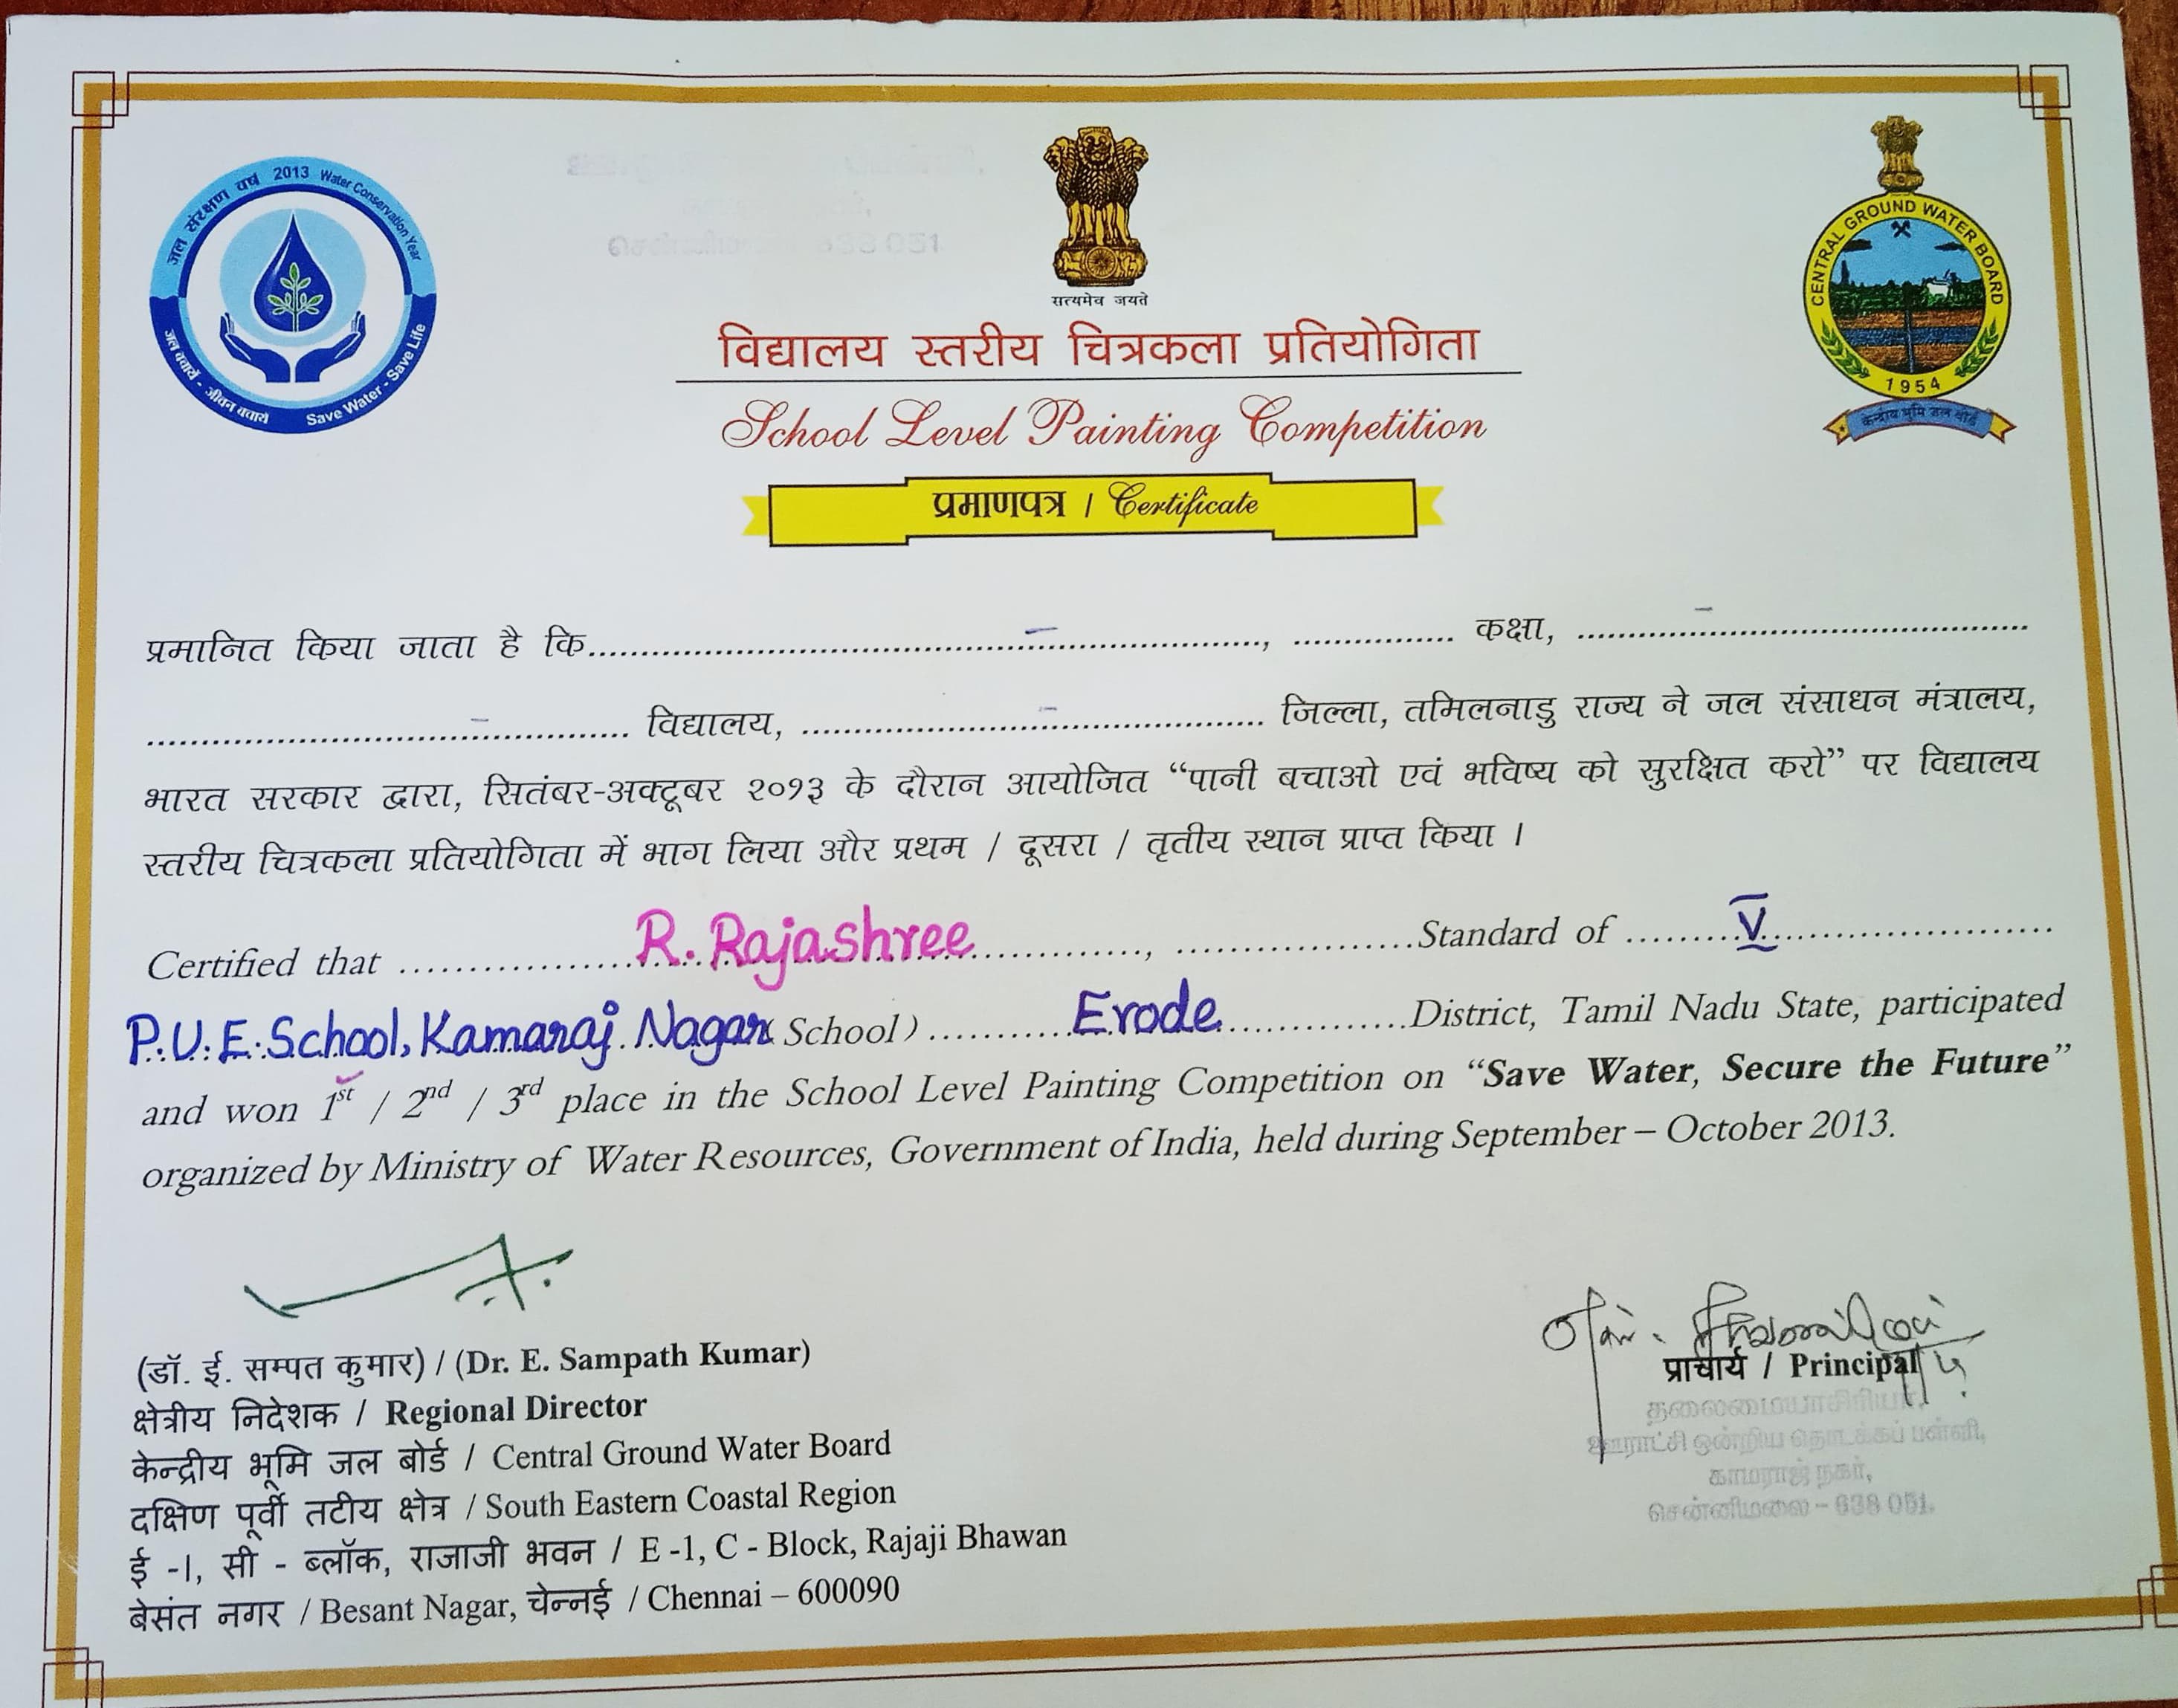 जल संरक्षण वर्ष 2013 Water Conservation Year
जल बचायें - जीवन बचायें Save Water - Save Life
सत्यमेव जयते
CENTRAL GROUND WATER BOARD
1954
केन्द्रीय भूमि जल बोर्ड
विद्यालय स्तरीय चित्रकला प्रतियोगिता
School Level Painting Competition
प्रमाणपत्र / Certificate
प्रमानित किया जाता है कि.............................–............................., ................. कक्षा, .............–.............................
.............................–................. विद्यालय, .........................–......................... जिल्ला, तमिलनाडु राज्य ने जल संसाधन मंत्रालय,
भारत सरकार द्वारा, सितंबर-अक्टूबर २०१३ के दौरान आयोजित “पानी बचाओ एवं भविष्य को सुरक्षित करो” पर विद्यालय
स्तरीय चित्रकला प्रतियोगिता में भाग लिया और प्रथम / दूसरा / तृतीय स्थान प्राप्त किया ।
Certified that ....................R. Rajashree................, ........................Standard of .........V..............................
P.U.E. School, Kamaraj Nagar (School) ............Erode................District, Tamil Nadu State, participated
and won 1st / 2nd / 3rd place in the School Level Painting Competition on “Save Water, Secure the Future”
organized by Ministry of Water Resources, Government of India, held during September – October 2013.
(डॉ. ई. सम्पत कुमार) / (Dr. E. Sampath Kumar)
क्षेत्रीय निदेशक / Regional Director
केन्द्रीय भूमि जल बोर्ड / Central Ground Water Board
दक्षिण पूर्वी तटीय क्षेत्र / South Eastern Coastal Region
ई -I, सी - ब्लॉक, राजाजी भवन / E -1, C - Block, Rajaji Bhawan
बेसंत नगर / Besant Nagar, चेन्नई / Chennai – 600090
प्राचार्य / Principal
தலைமையாசிரியர்,
ஊராட்சி ஒன்றிய தொடக்கப் பள்ளி,
காமராஜ் நகர்,
சென்னிமலை – 638 051.